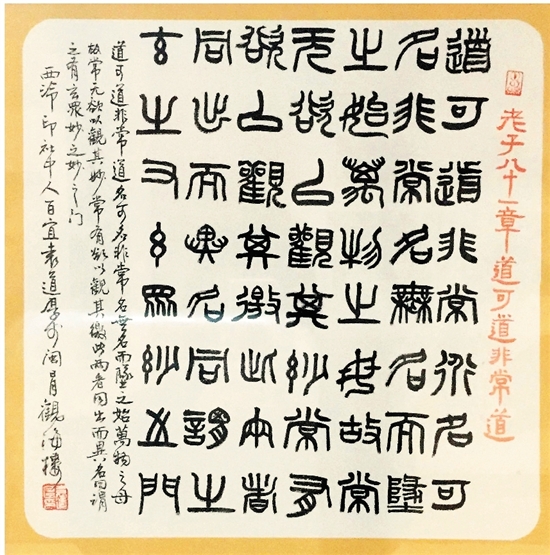 老子八十一章道可道非常道
道可道非常道名可
名非常名無名而墬
之始萬物之母故常
无欲以觀其妙常有
欲以觀其徼此兩者
同出而異名同謂之
玄之又玄眾妙之門
道可道非常道名可名非常名無名而墬之始萬物之母
故常无欲以觀其妙常有欲以觀其徼此两者同出而異名同謂
之有玄眾妙之妙之门
西泠印社中人百宜袁道厚於觀海樓